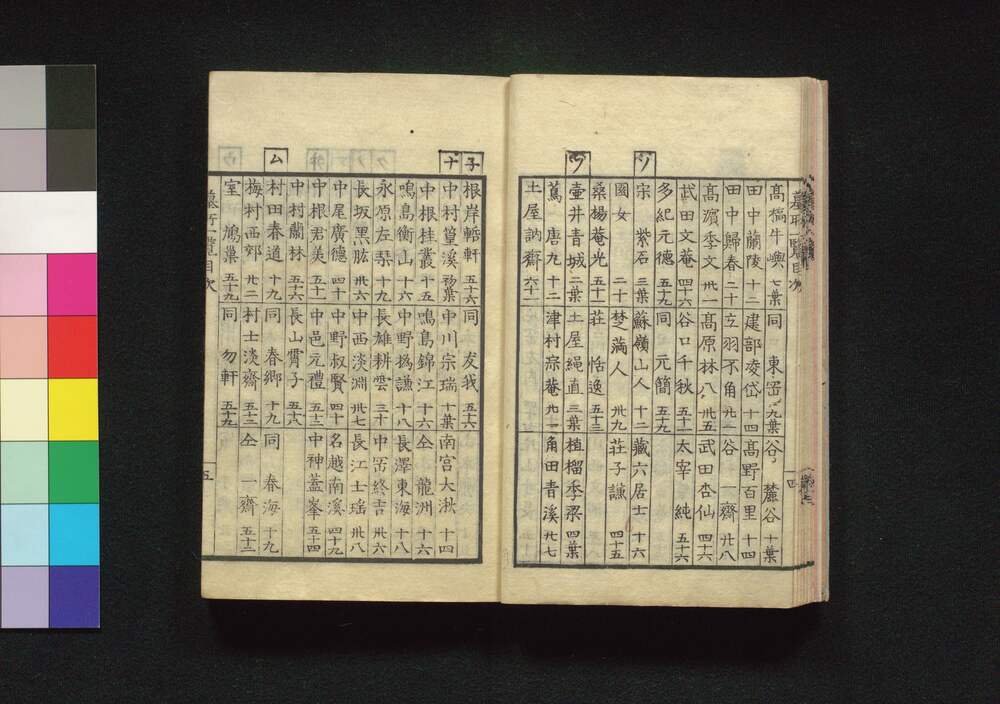 高橋牛嶼 七葉 同 東 九葉 谷 麓谷 十葉
田中蘭陵 十二 建部凌岱 十四 高野百里 十四
田中歸春 二十 立羽不角 谷 一齋 廿八
高濱季文 卅一 高原林八 卅五 武田杏仙 四十六
武田文菴 四十六 谷口千秋 太宰 純 五十六
多紀元德 五十九 同 元簡 五十九
ソ
宋 紫石 三葉 蘇嶺山人 十二 藏六居士 十六
國女 二十 楚滿人 卅九 莊子謙 四十五
桑楊菴光 五十二 莊 恬逸 五十三
ツ
壷井青城 二葉 土屋繩直 三葉 植榴季梁 四葉
蔦 唐九 十二 津村淙菴 角田青溪 廿七
土屋訥齋
四
子
根岸 五十六 同 友我 五十六
ナ
中村篁溪 中川宗瑞 十葉 南宮大湫 十四
中根桂叢 十五 鳴島錦江 十六 仝 龍洲 十六
鳴島衡山 十六 中野撝謙 十八 長澤東海 十八
永原左琹 十九 長雄耕雲 三十 中 終吉 卅六
長坂黒肱 卅六 中西淡淵 卅七 長江士瑤 卅八
中尾廣德 四十 中野叔賢 四十 名越南溪 四十九
中根君美 五十二 中邑元禮 五十三 中神葢峯 五十四
中村蘭林 五十六 長山霄子 五十八
ム
村田春道 十九 同 春郷 十九 同 春海 十九
梅村西郊 廿二 村士淡齋 五十三 仝 一齋 五十三
室 鳩巢 五十九 同 勿軒 五十九
墓所一覽目次
五